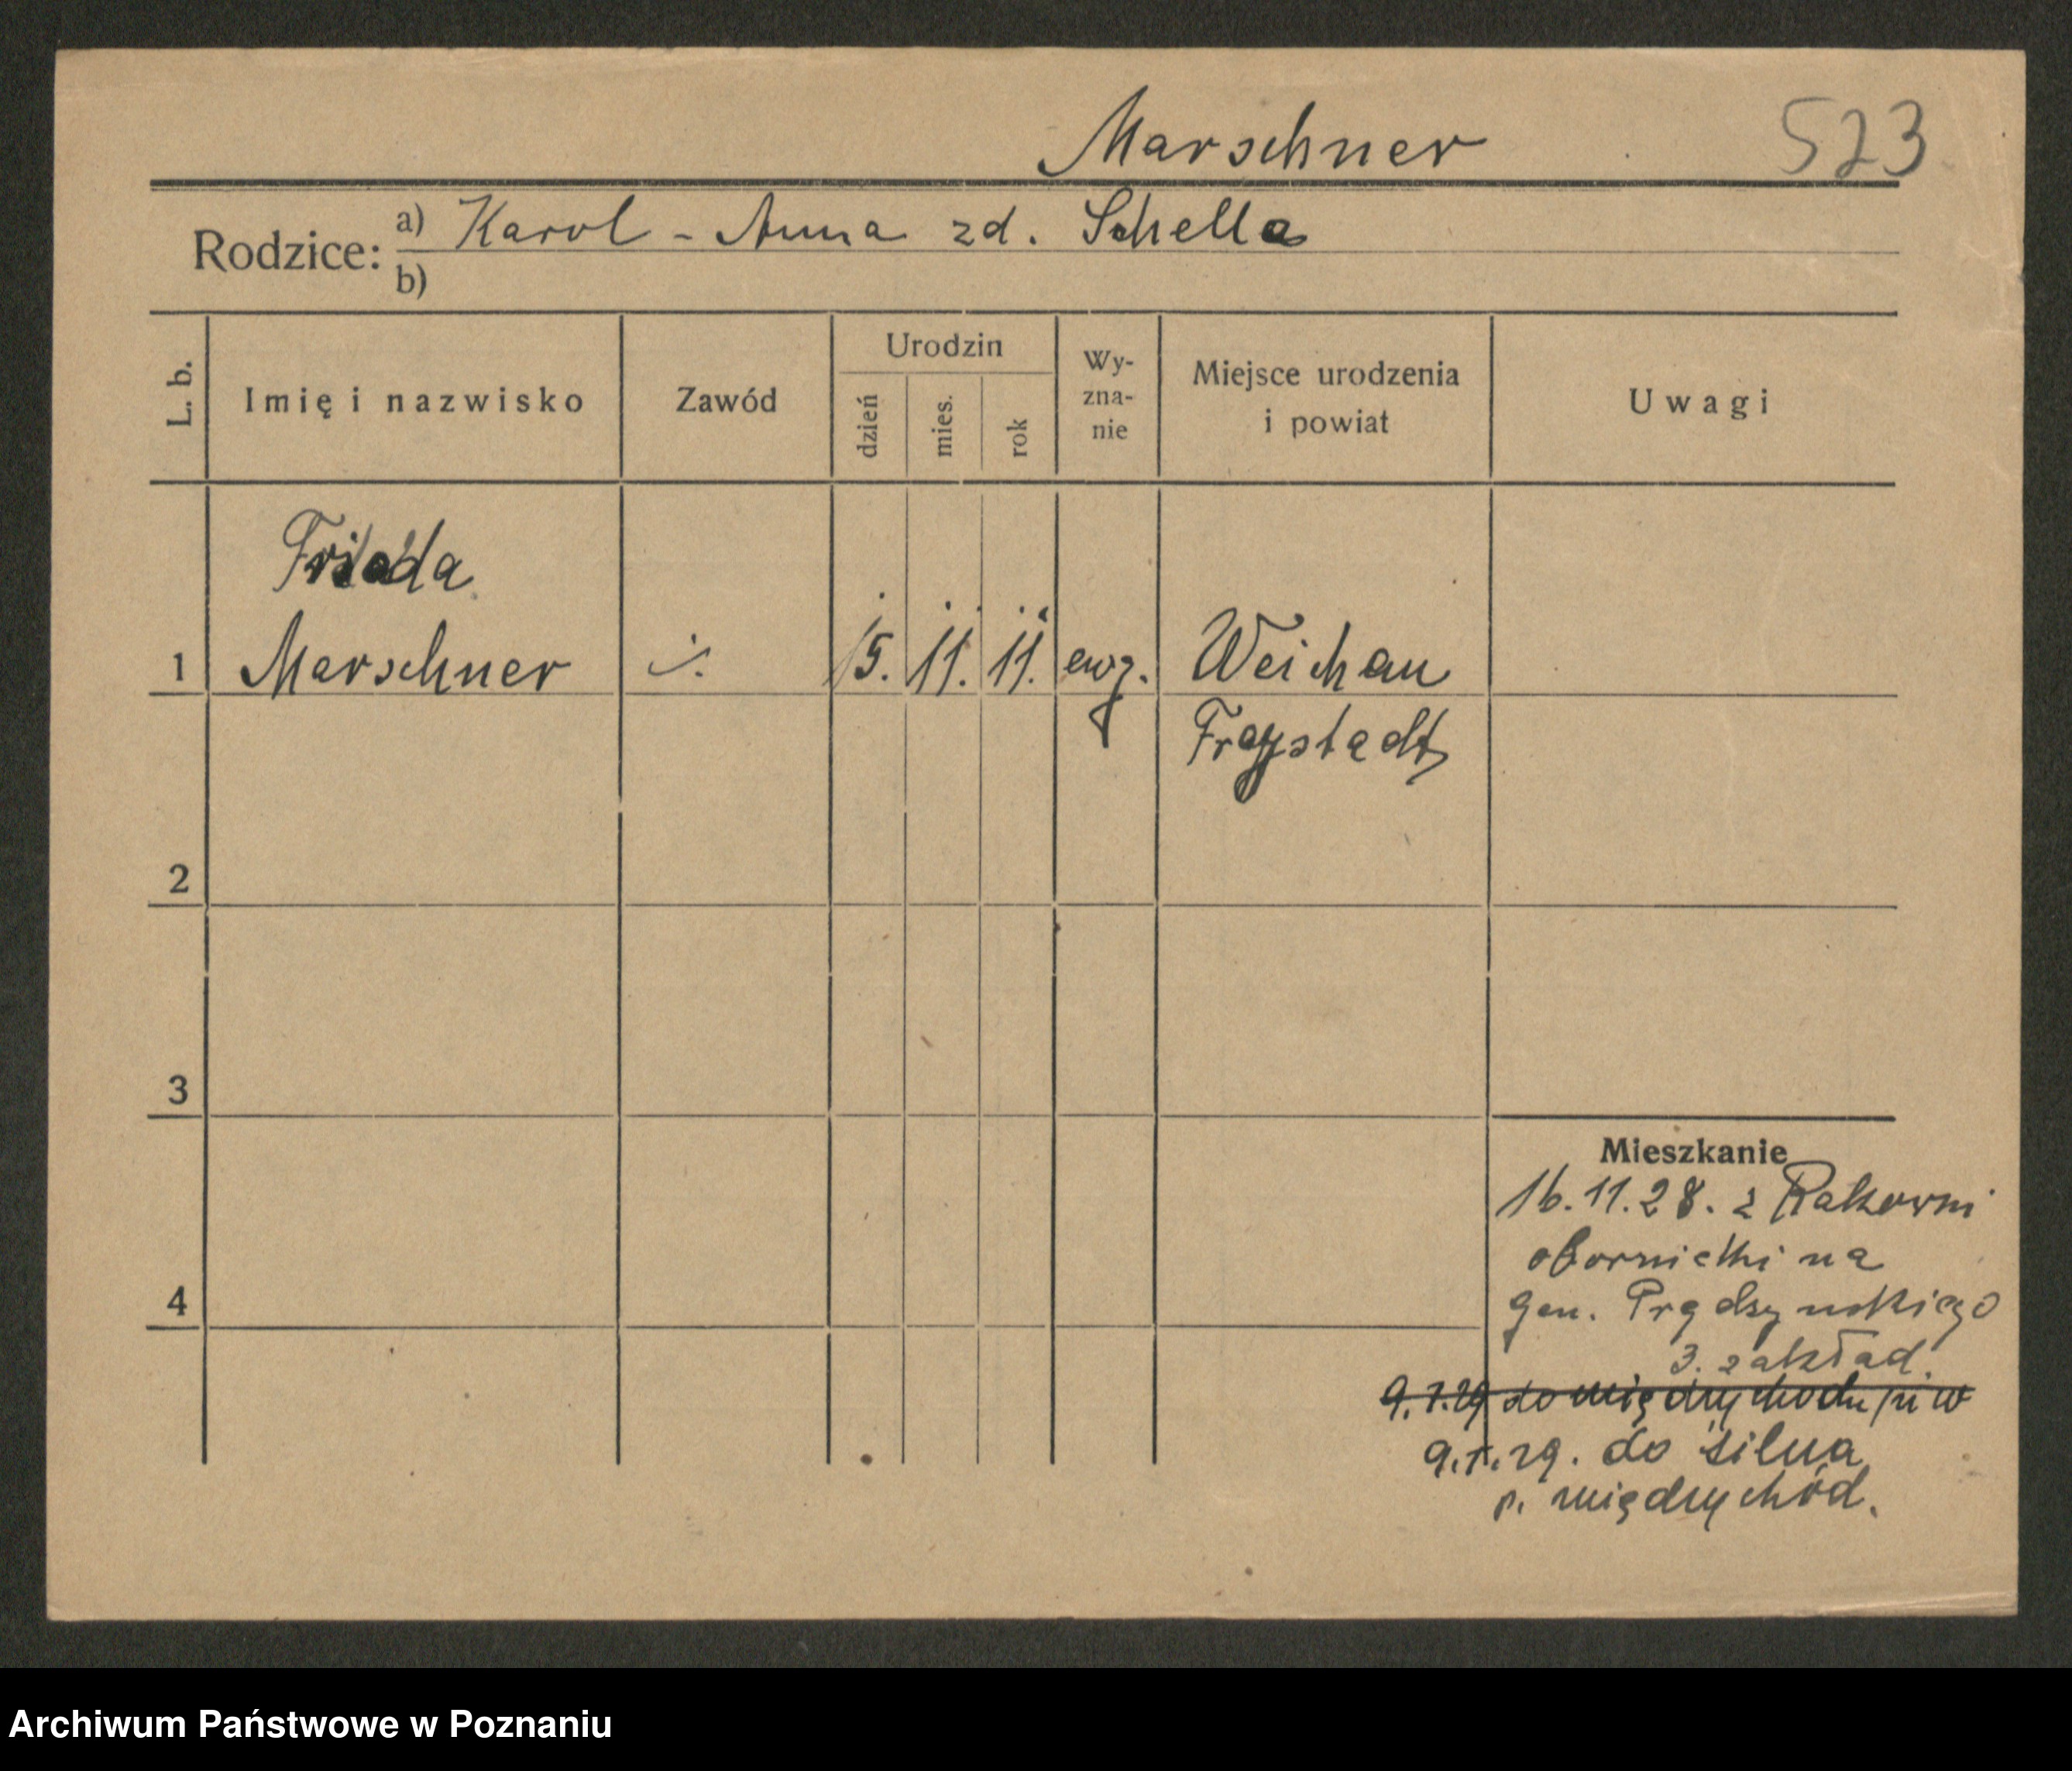 Marschner 523
Rodzice: a) Karol - Anna zd. Schella
b)
L. b. Imię i nazwisko Zawód Urodzin dzień mies. rok Wy-zna-nie Miejsce urodzenia i powiat Uwagi
Frieda
1 Marschner ./. 15. 11. 11. ewg. Weichau
Fraystadt
2
3
Mieszkanie
16.11.28. z Rakowni
obornicki na
4 gen. Prądzyńskiego
3. zakład.
9.1.29 do Międzychodu
9.1.29. do Silna
p. Międzychód.
Archiwum Państwowe w Poznaniu